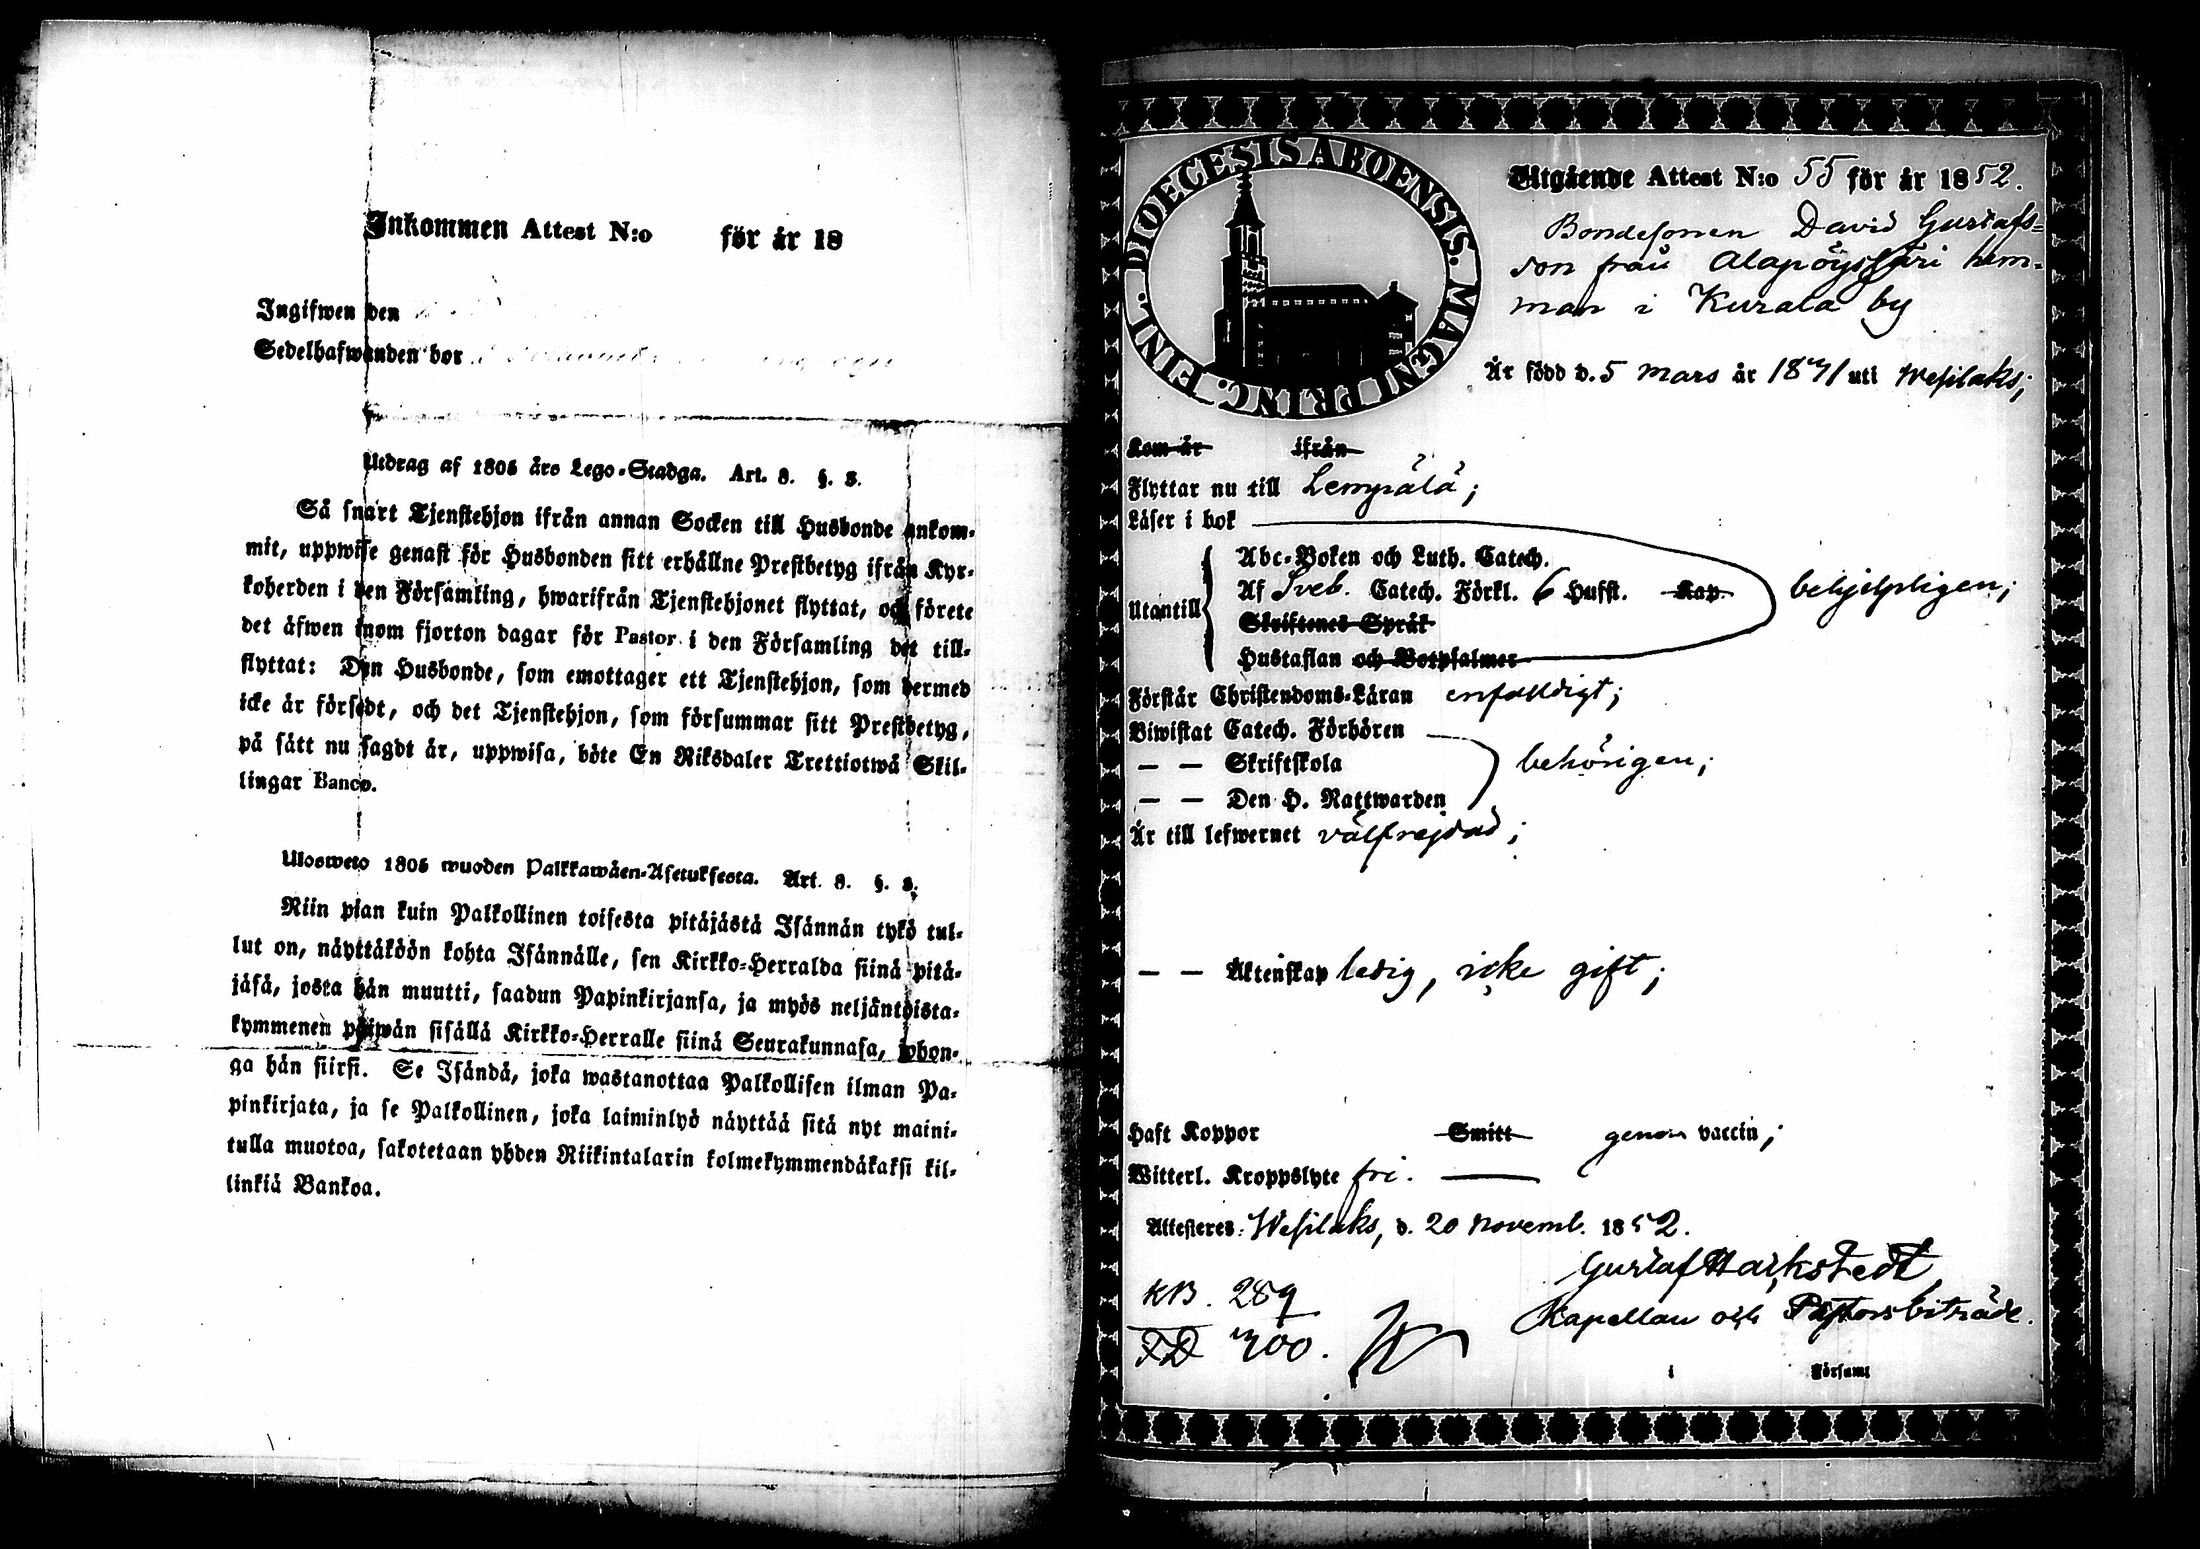 Inkommen Attest N:o för år 18
Ingifwen den
Sedelhafwanden bor
Utdrag af 1805 års Lego-Stadga. Art. 8. §. 3.
Så snart Tjenstehjon ifrån annan Socken till Husbonde ankom-
mit, uppwise genast för Husbonden sitt erhållne Prestbetyg ifrån Kyr-
koherden i den Församling, hwarifrån Tjenstehjonet flyttat, och förete
det äfwen inom fjorton dagar för Pastor i den Församling det till-
flyttat: Den Husbonde, som emottager ett Tjenstehjon, som dermed
icke är försedt, och det Tjenstehjon, som försummar sitt Prestbetyg,
på sätt nu sagdt är, uppwisa, böte En Riksdaler Trettiotwå Skil-
lingar Banco.
Uloswето 1805 wuoden Palkkawäen-Asetuksesta. Art. 8. §. 3.
Niin pian kuin Palkollinen toisesta pitäjästä Isännän tykö tul-
lut on, näyttäköön kohta Isännälle, sen Kirkko-Herralda siinä pitä-
jäsä, josta hän muutti, saadun Papinkirjansa, ja myös neljäntoista-
kymmenen päiwän sisällä Kirkko-Herralle siinä Seurakunnasa, johon-
ga hän siirsi. Se Isändä, joka wastanottaa Palkollisen ilman Pa-
pinkirjata, ja se Palkollinen, joka laiminlyö näyttää sitä nyt maini-
tulla muotoa, sakotetaan yhden Riikintalarin kolmekymmendäkaksi kil-
linkiä Bankoa.
DIOECESIS ABOENSIS. MAGNI PRINC. FINL.
Utgående Attest N:o 55 för år 1852.
Bondesonen David Gustafs-
son från Alapöyssäri hem-
man i Kurala by
Är född d. 5 mars år 1831 uti Wesilaks;
Kom år ifrån
Flyttar nu till Lempälä;
Läser i bok
Abc-Boken och Luth. Catech.
Utantill Af Sveb. Catech. Förkl. 6 Hufst. Kap. behjelpligen;
Skriftenes Språk
Hustaflan och Botpsalmer
Förstår Christendoms-Läran enfaldigt;
Biwistat Catech. Förhören
— — Skriftskola behörigen;
— — Den H. Nattwarden
Är till lefwernet välfrejdad;
— — Äktenskap ledig, icke gift;
Haft Koppor Smitt genom vaccin;
Witterl. Kroppslyte fri.
Attesteres: Wesilaks, d. 20 novemb. 1852.
Gustaf Harkstedt
KB. 289
Kapellan och Pastorsbiträde.
TD 300.
i Församl